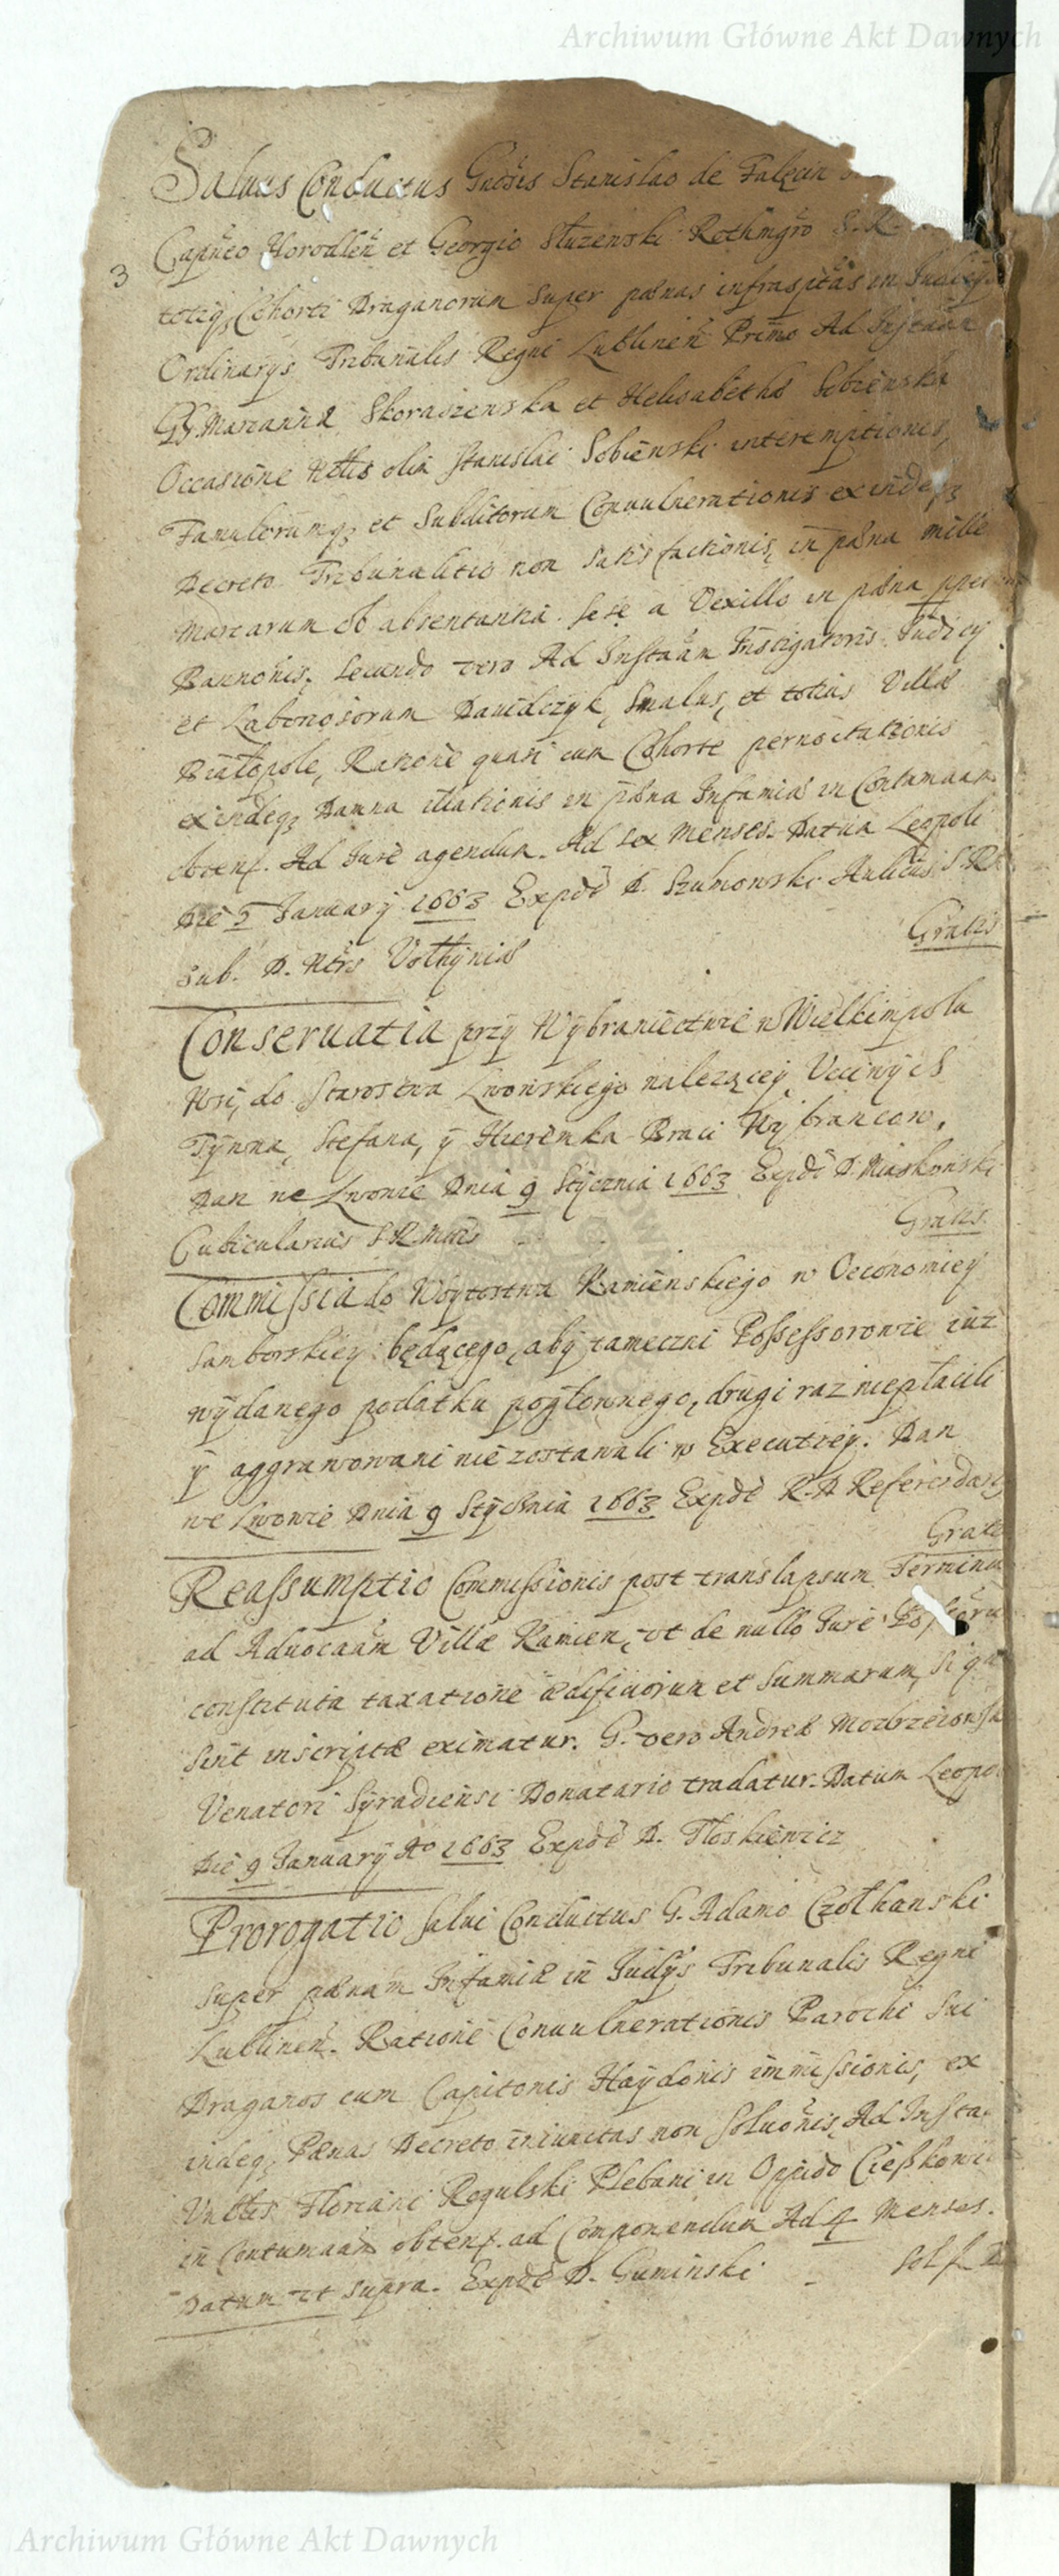 Archiwum Główne Akt Dawnych
Salvus Conductus Gnosis Stanislao de Falęcin
Capneo Horodlen et Georgio Służewski Rothmgro S. R.
3
totiq Cohorti Draganorum super pænas infrasptas in Judicijs
Ordinarijs Tribunalis Regni Lublinen Primo Ad Instaam
GG Mariannæ Skoraszewska et Helisabethæ Sobienska
Occasione Nblis olim Stanislai Sobienski interemptionis,
Famulorumq et Subditorum Convulnerationis exindeq
Decreto Tribunalitio non satisfactionis, in pæna mille
Marcarum ob absentantia sese a Vexillo in pæna pper
Bannonis, Secundo vero Ad Instaam Instigatoris Judicij
et Laboriosorum Dawidczyk, Smalus, et totius Villæ
Białopole, Ratione quasi cum Cohorte pernoctationis
exindeq Damna illationis in pæna Infamiæ in Contumaam
obtent. Ad Jure agendum. Ad sex Menses. Datum Leopoli
Die 5 January 1663 Expdt D. Szumowski Aulicus S. R.
Gratis
sub. D. Ntris Vołhyniæ
Conservatia przy Wybraniectwie w Wielkimpolu
Wsi, do Starostwa Lwowskiego nalezącey Vcciwych
Tymna, Stefana, y Hieremka Braci Wybrancow,
Dan we Lwowie Dnia 9 Stycznia 1663 Expdt D. Miaskowski
Gratis.
Cubicularius S R Mttis
Commissia do Woytostwa Kamienskiego w Oeconomiey
Samborskiey będącego, aby tameczni Possessorowie iuz
wydanego podatku pogłownego, drugi raz niepłacili
y aggrawowani nie zostawali w Executiey. Dan
we Lwowie Dnia 9 Stycznia 1663 Expdt R. D Referendarij
Gratis
Reassumptio Commissionis post translapsum Terminu
ad Advocaam Villæ Kamien, vt de nullo Jure
constituta taxatione ædificiorum et Summarum, si quæ
sint inscriptæ eximatur. G. vero Andreæ Mozdrzeiowski
Venatori Syradiensi Donatario tradatur. Datum Leopoli
Die 9 January Ao 1663 Expdt D. Floskiewicz
Prorogatio salvi Conductus G. Adamo Czołhanski
super pænam Infamiæ in Judijs Tribunalis Regni
Lublinen. Ratione Convulnerationis Parochi sui
Draganos cum Capitonis Haydonis immissionis, ex
indeq Pænas Decreto iniunctas non Soluonis, Ad Insta
Vnblis Floriani Rogulski Plebani in Oppido Cieszkowi
in Contumaam obtent. ad Componendum Ad 4 Menses.
Datum vt supra. Expdt D. Guminski - Sol f
Archiwum Główne Akt Dawnych